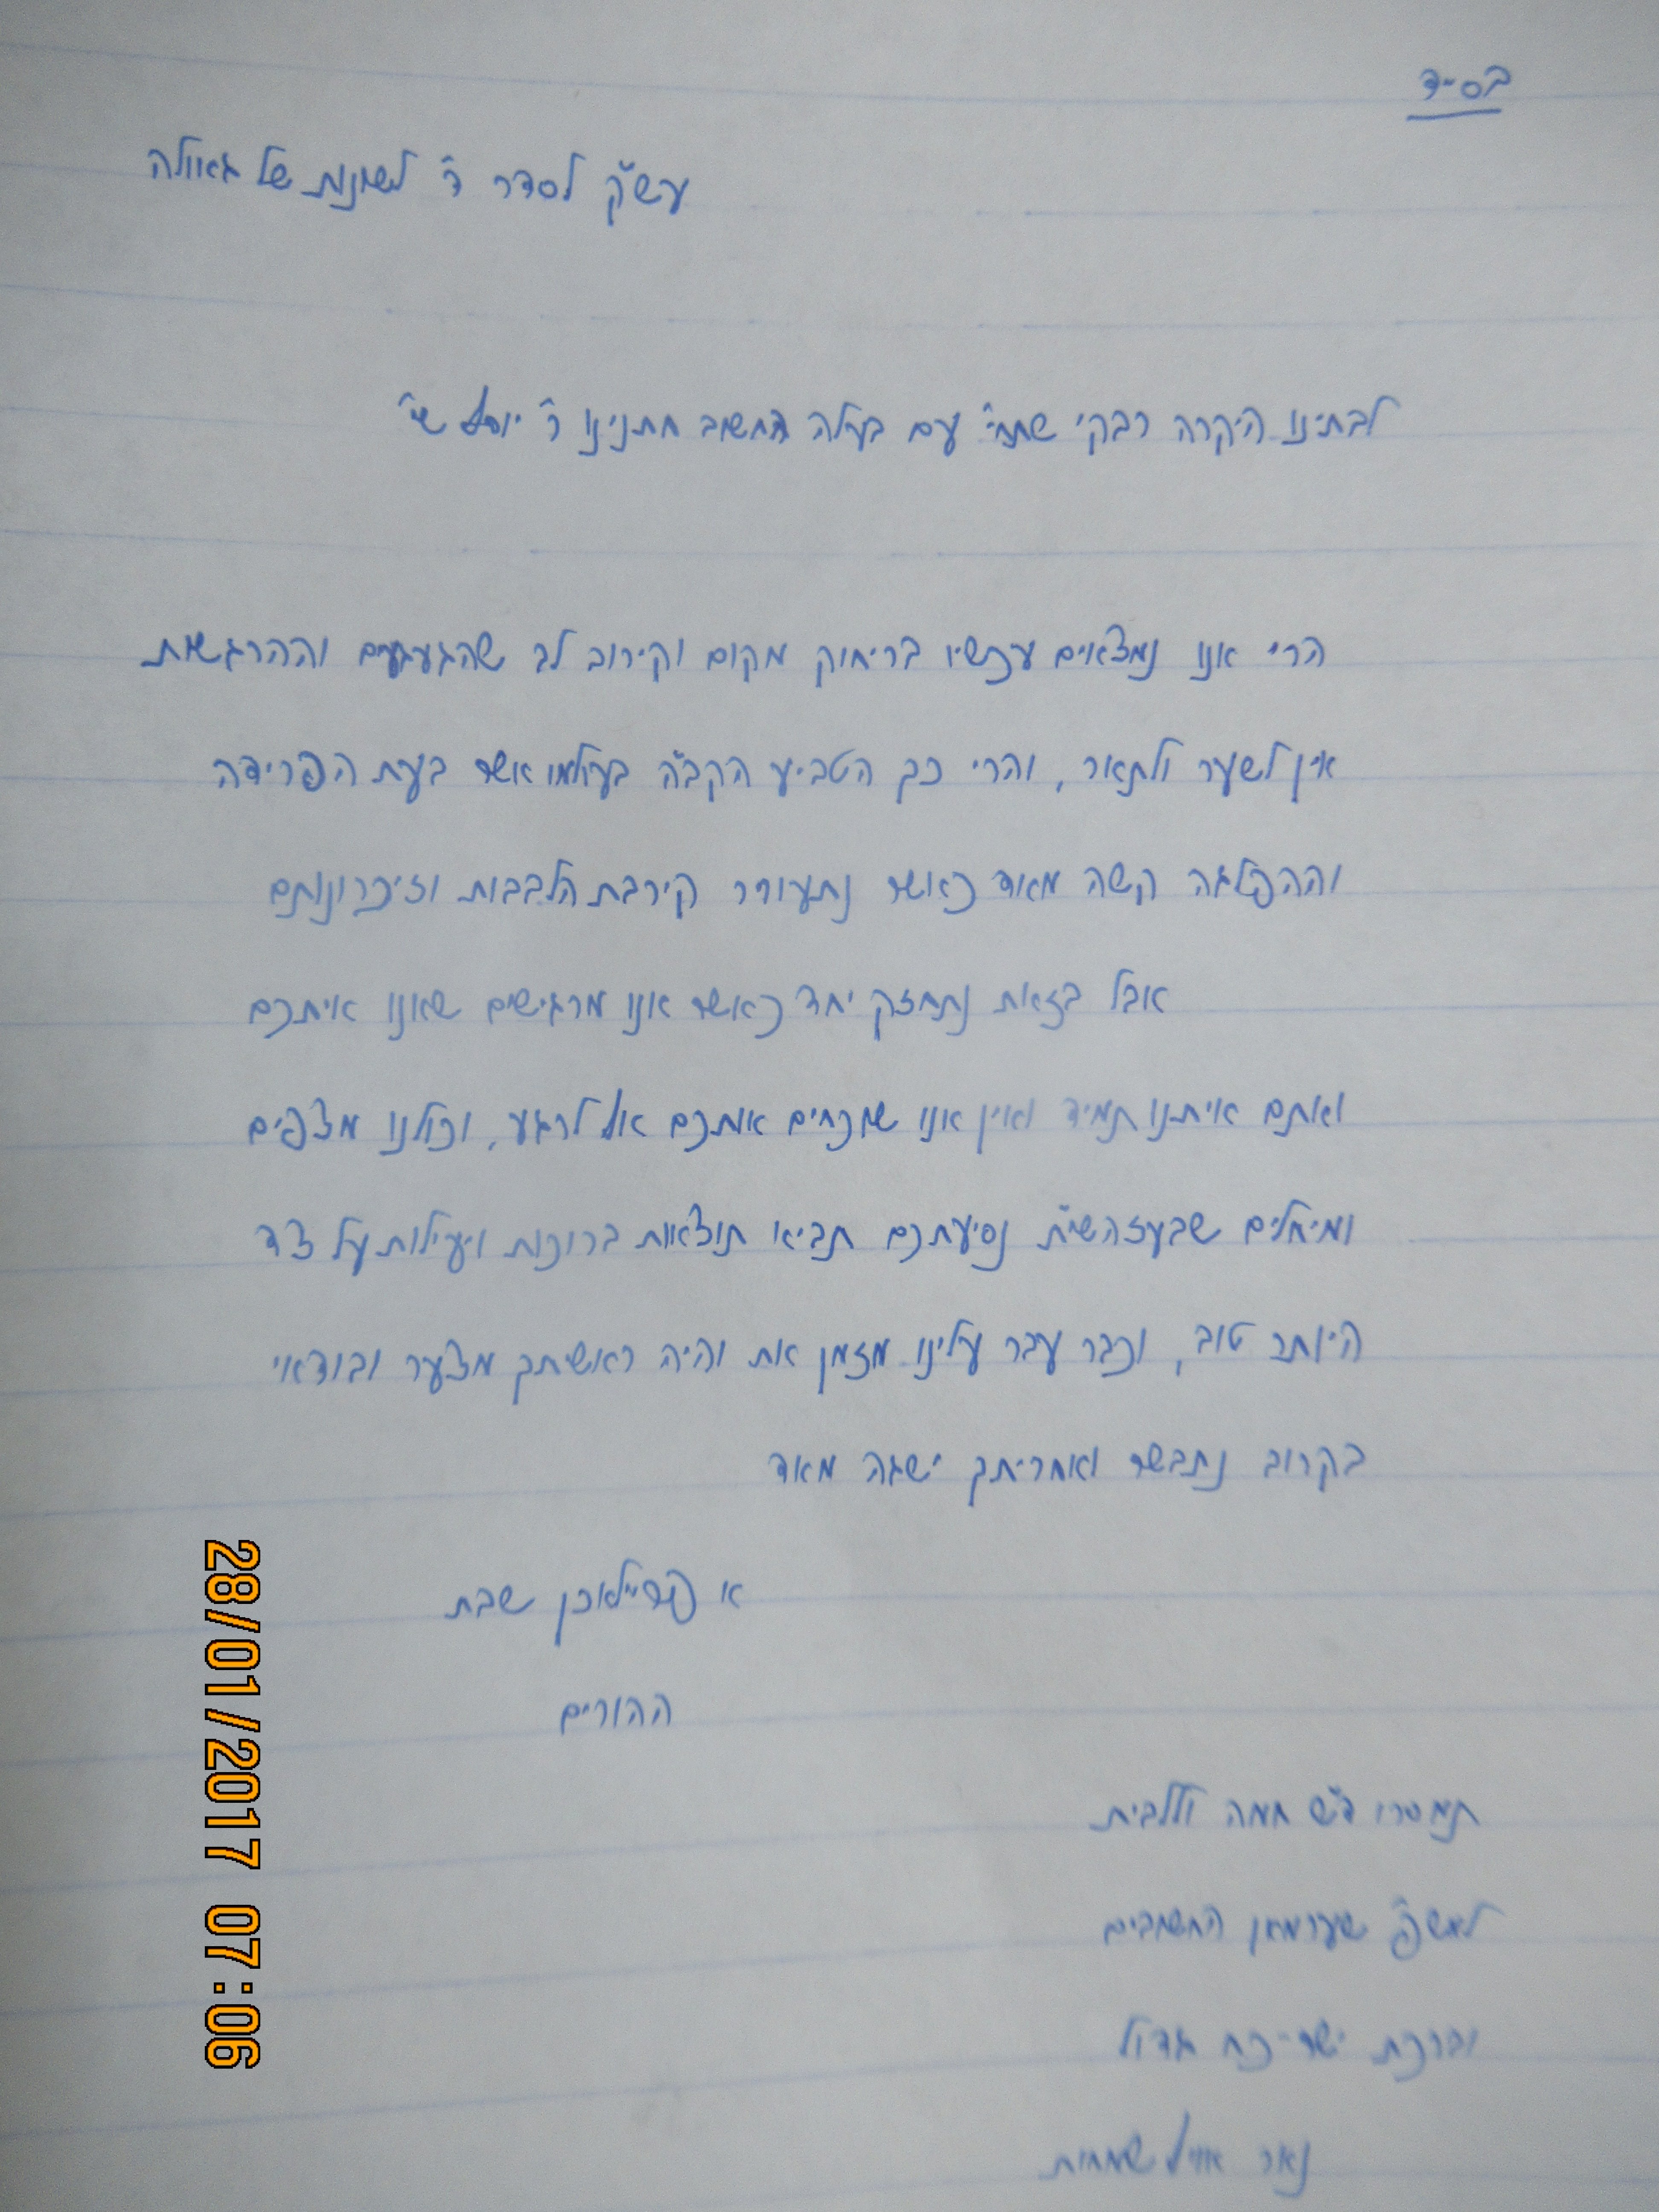 בס"ד
עש"ק לסדר ד' לשונות של גאולה
לבתינו היקרה רבקי שתחי' עם בעלה החשוב חתנינו ר' יוסף שי'
הרי אנו נמצאים עכשיו בריחוק מקום וקירוב לב שהגעגועים וההרגשות
אין לשער ולתאר, והרי כך הטביע הקב"ה בעולמו אשר בעת הפרידה
וההפלגה קשה מאוד כאשר נתעורר קירבת הלבבות וזיכרונותם
אבל בזאת נתחזק יחד כאשר אנו מרגישים שאנו איתכם
ואתם איתנו תמיד ואין אנו שוכחים אותכם אף לרגע, וכולנו מצפים
ומיחלים שבעזהשי"ת נסיעתכם תביא תוצאות ברוכות ויעילות על צד
היותר טוב, וכבר עבר עלינו מזמן את והיה ראשיתך מצער ובודאי
בקרוב נתבשר ואחריתך ישגה מאד
א פרייליכן שבת
ההורים
תמסרו ד"ש חמה ולבבית
למשפ' שערמאן החשובים
וברכת ישר-כח גדול
נאר אויף שמחות
28/01/2017 07:06